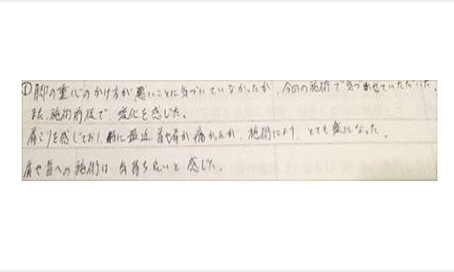 ① 脚の重心のかけ方が悪いことに気づいていなかったが、今回の施術で気づかせていただいた。
また、施術前後で変化を感じた。
肩こりを感じており、特に最近 首や肩が痛かったが、施術により、とても楽になった。
肩や首への施術は 気持ち良いと感じた。